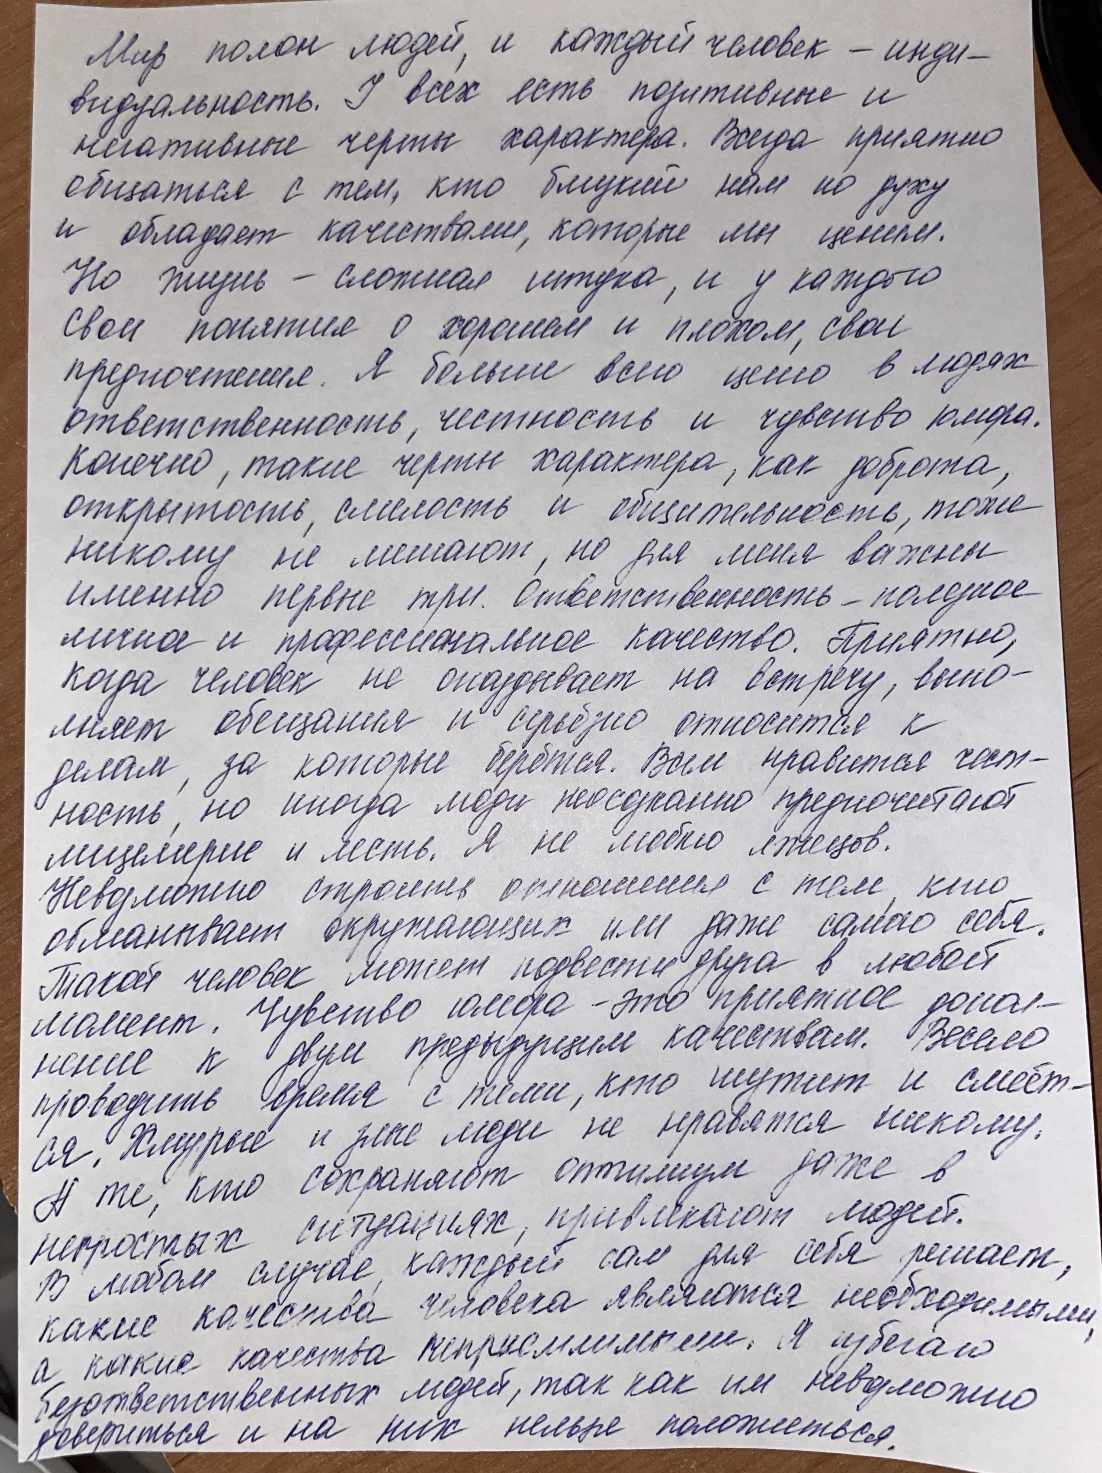 Мир полон людей, и каждый человек – инди-
видуальность. У всех есть позитивные и
негативные черты характера. Всегда приятно
общаться с тем, кто близкий нам по духу
и обладает качествами, которые мы ценим.
Но жизнь – сложная штука, и у каждого
свои понятия о хорошем и плохом, свои
предпочтения. Я больше всего ценю в людях
ответственность, честность и чувство юмора.
Конечно, такие черты характера, как доброта,
открытость, смелость и общительность, тоже
никому не мешают, но для меня важны
именно первые три. Ответственность – полезное
личное и профессиональное качество. Приятно,
когда человек не опаздывает на встречу, выпо-
лняет обещания и серьёзно относится к
делам, за которые берётся. Всем нравится чест-
ность, но иногда люди неосознанно предпочитают
лицемерие и лесть. Я не люблю лжецов.
Невозможно строить отношения с тем, кто
обманывает окружающих или даже самого себя.
Такой человек может подвести друга в любой
момент. Чувство юмора – это приятное допол-
нение к двум предыдущим качествам. Весело
проводить время с теми, кто шутит и смеёт-
ся. Хмурые и злые люди не нравятся никому.
А те, кто сохраняют оптимизм даже в
непростых ситуациях, привлекают людей.
В любом случае, каждый сам для себя решает,
какие качества человека являются необходимыми,
а какие качества неприемлимыми. Я избегаю
безответственных людей, так как им невозможно
довериться и на них нельзя положиться.